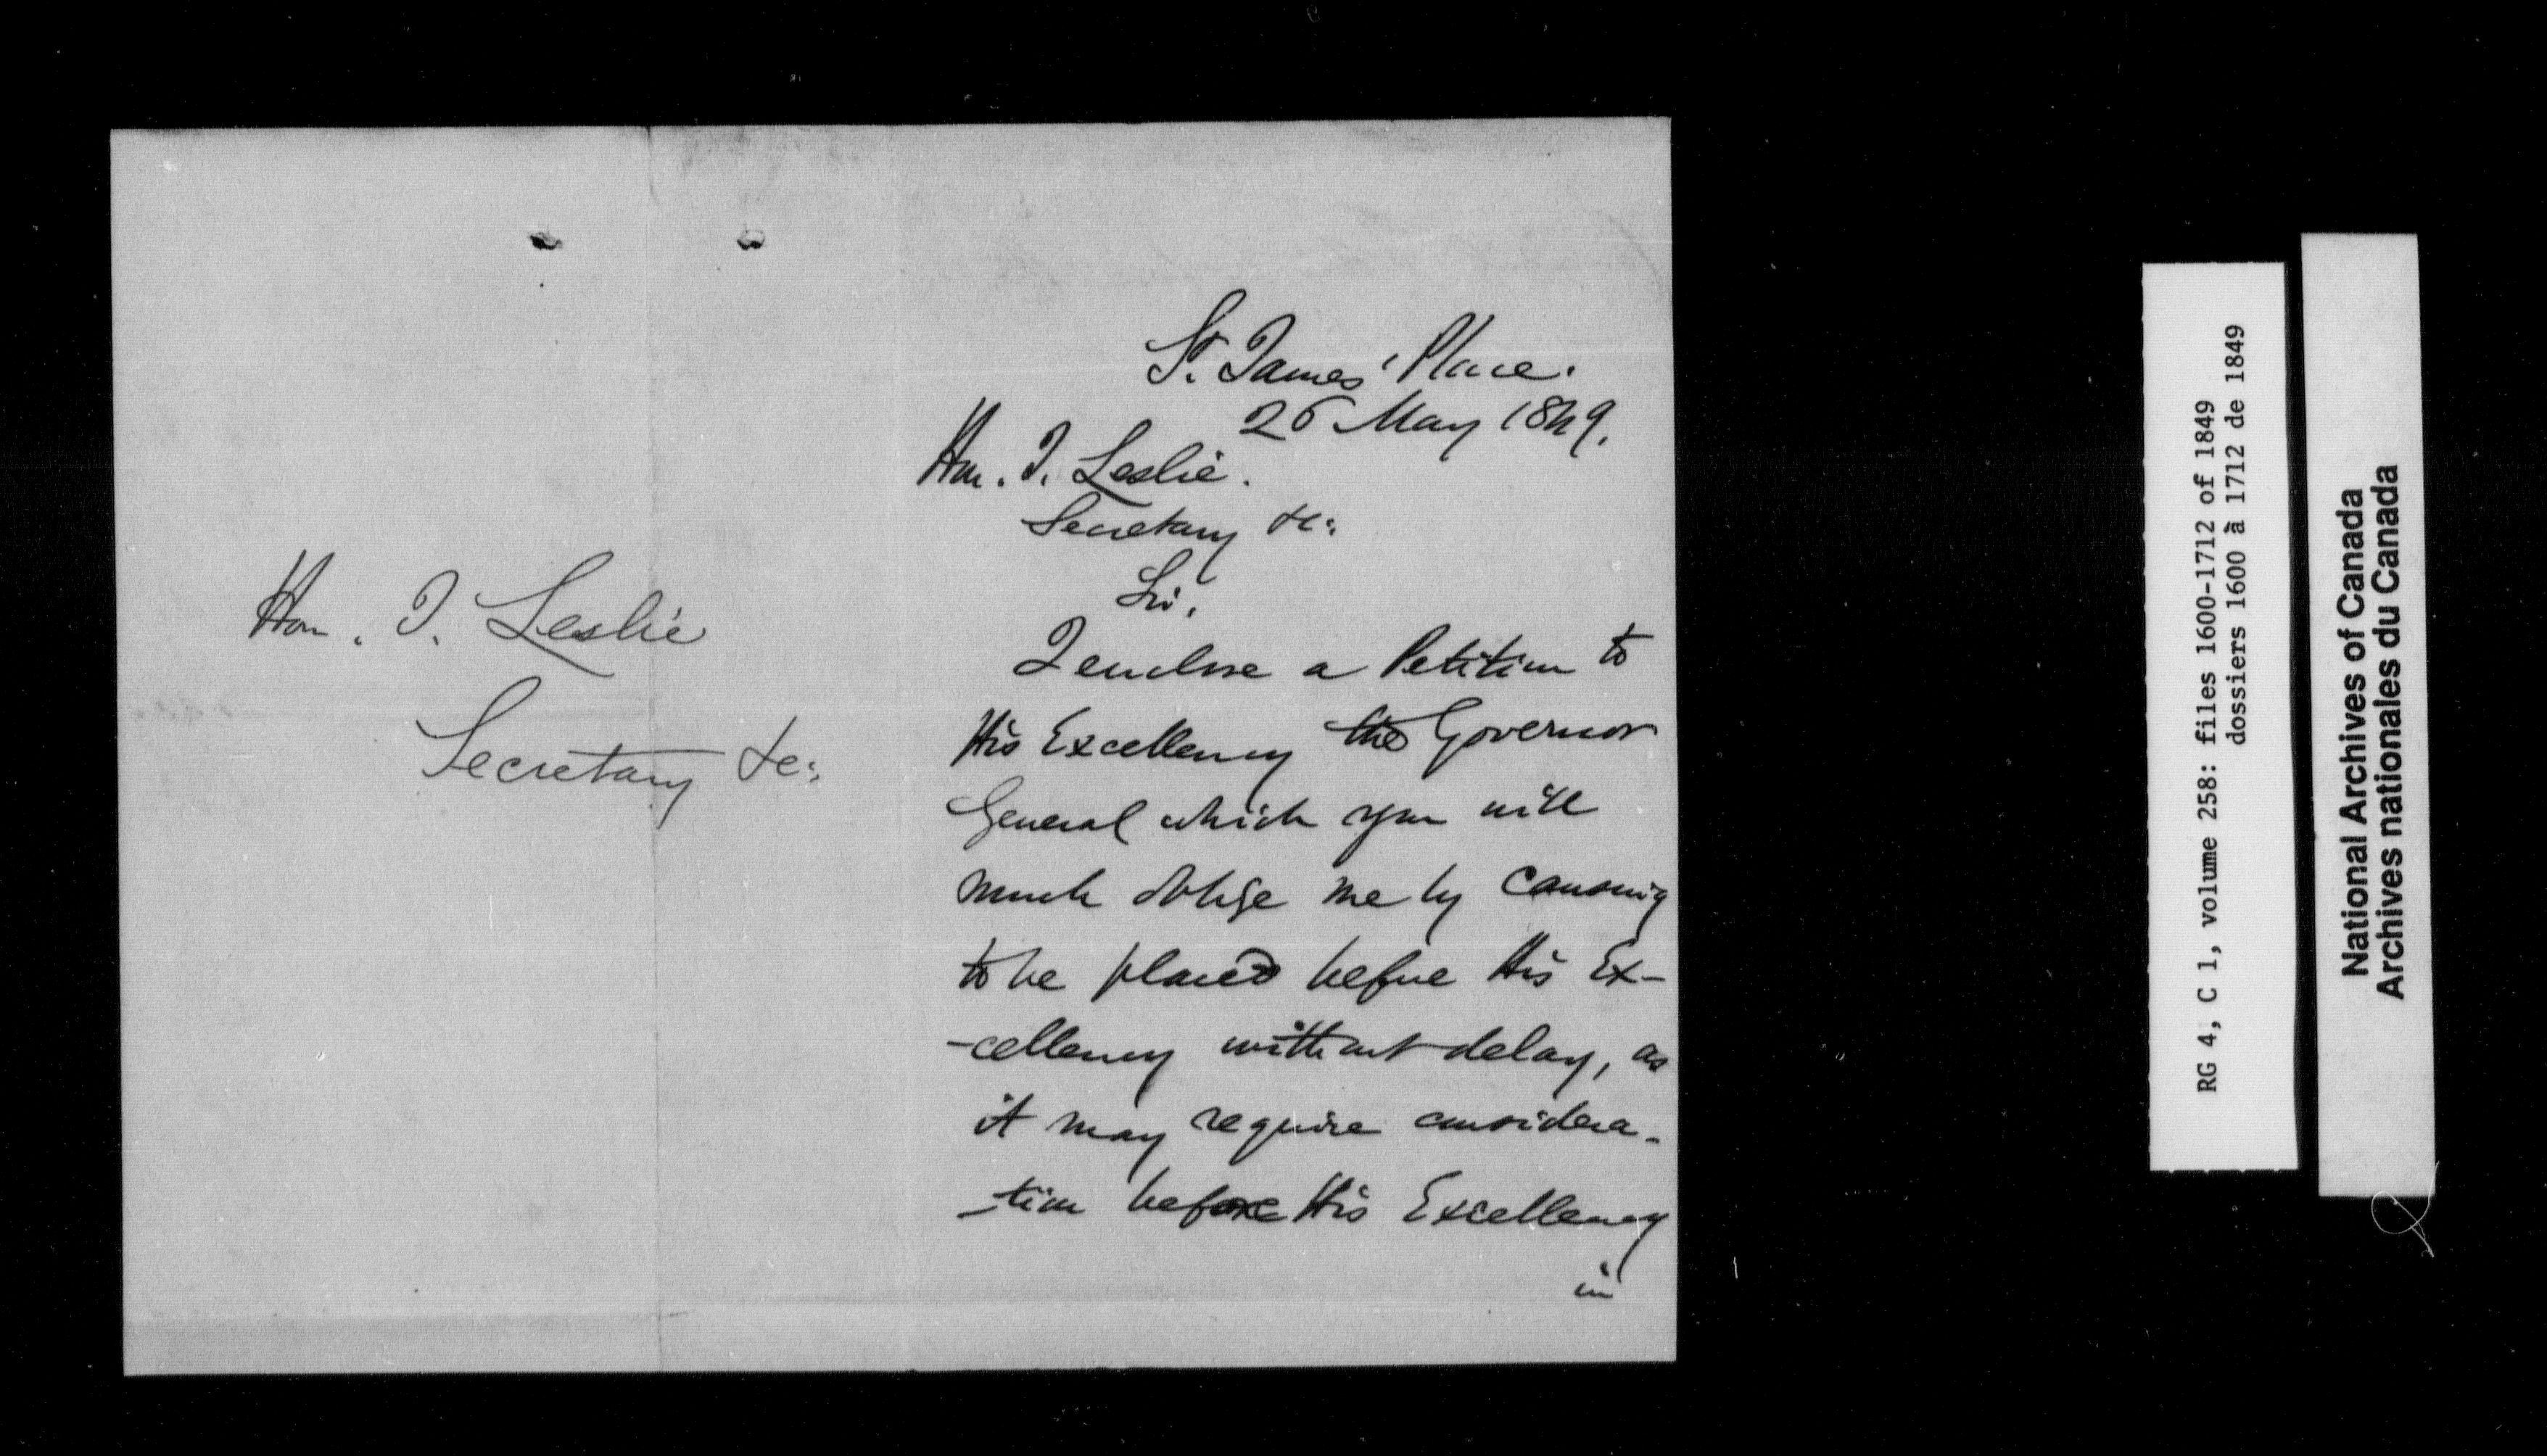 Hon. J. Leslie
Secretary &c:
St. James' Place.
26 May 1849.
Hon. J. Leslie.
Secretary &c:
Sir,
I enclose a Petition to
His Excellency the Governor
General which you will
much oblige me by causing
to be placed before His Ex-
-cellency without delay, as
it may require considera-
-tion before His Excellency
in
RG 4, C 1, volume 258: files 1600-1712 of 1849
dossiers 1600 à 1712 de 1849
National Archives of Canada
Archives nationales du Canada